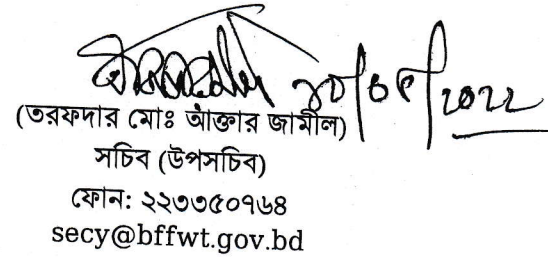 ২০/০৪/২০২২
(তরফদার মোঃ আঁক্তার জামীল)
সচিব (উপসচিব)
ফোন: ২২৩৩৫০৭৬৪
secy@bffwt.gov.bd